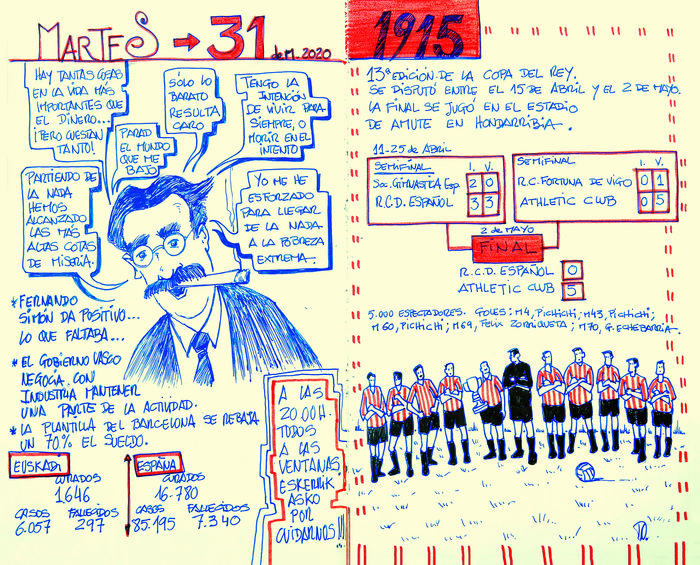 MARTES → 31 de M. 2020
HAY TANTAS COSAS
EN LA VIDA MÁS
IMPORTANTES QUE
EL DINERO...
¡PERO CUESTAN
TANTO!
PARAD
EL MUNDO
QUE ME
BAJO
SÓLO LO
BARATO
RESULTA
CARO
TENGO LA
INTENCIÓN
DE VIVIR PARA
SIEMPRE, O
MORIR EN EL
INTENTO
PARTIENDO DE
LA NADA
HEMOS
ALCANZADO
LAS MÁS
ALTAS COTAS
DE MISERIA.
YO ME HE
ESFORZADO
PARA LLEGAR
DE LA NADA
A LA POBREZA
EXTREMA.
* FERNANDO
SIMÓN DA POSITIVO...
LO QUE FALTABA...
* EL GOBIERNO VASCO
NEGOCIA CON
INDUSTRIA MANTENER
UNA PARTE DE LA ACTIVIDAD.
* LA PLANTILLA DEL BARCELONA SE REBAJA
UN 70% EL SUELDO.
EUSKADI
CURADOS
1.646
CASOS FALLECIDOS
6.057 297
ESPAÑA
CURADOS
16.780
CASOS FALLECIDOS
85.195 7.340
A LAS
20:00H.
TODOS
A LAS
VENTANAS
ESKERRIK
ASKO
POR
CUIDARNOS!!!
1915
13ª EDICIÓN DE LA COPA DEL REY.
SE DISPUTÓ ENTRE EL 15 DE ABRIL Y EL 2 DE MAYO.
LA FINAL SE JUGÓ EN EL ESTADIO
DE AMUTE EN HONDARRIBIA.
11-25 DE ABRIL
SEMIFINAL I. V.
SOC. GIMNASTICA ESP. 2 0
R.C.D. ESPAÑOL 3 3
SEMIFINAL I. V.
R.C. FORTUNA DE VIGO 0 1
ATHLETIC CLUB 0 5
2 DE MAYO
FINAL
R.C.D. ESPAÑOL 0
ATHLETIC CLUB 5
5.000 ESPECTADORES. GOLES: M4, PICHICHI; M43, PICHICHI;
M60, PICHICHI; M69, FELIX ZORRIQUETA; M70, G. ECHEBARRIA.